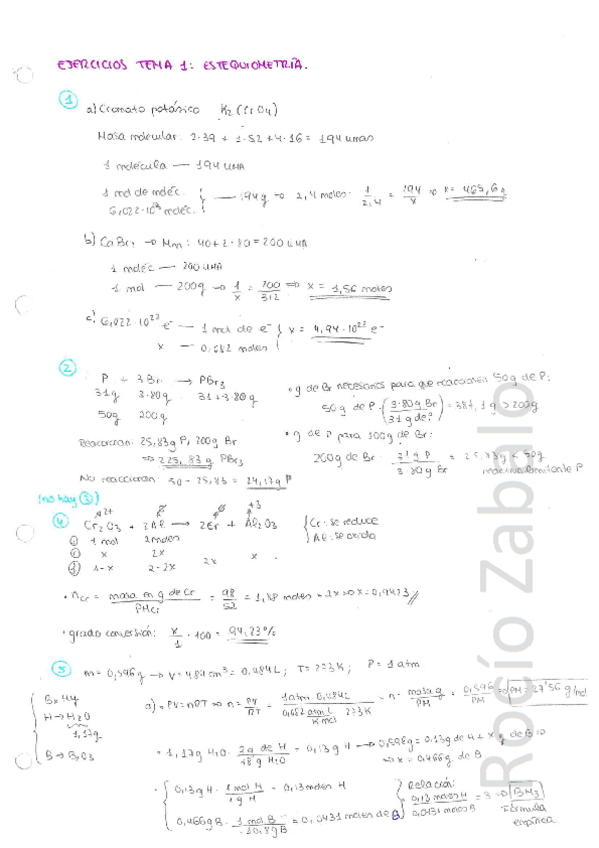 EJERCICIOS TEMA 1: ESTEQUIOMETRÍA.
1
a) Cromato potásico K2(CrO4)
Masa molecular: 2·39 + 1·52 + 4·16 = 194 umas
1 molécula — 194 UMA
1 mol de moléc.
6,022·10²³ moléc. } — 194g → 2,4 moles: 1/2,4 = 194/x → x = 465,6 g
b) CaBr2 → Mm: 40+2·80 = 200 UMA
1 moléc — 200 UMA
1 mol — 200g → 1/x = 200/312 ⇒ x = 1,56 moles
c) 6,022·10²³ e⁻ — 1 mol de e⁻ } x = 4,94·10²³ e⁻
x — 0,82 moles
2
P + 3Br → PBr3
31g 3·80g 31+3·80g
50g 200g
• g de Br necesarios para que reaccionen 50g de P:
50g de P · (3·80g Br / 31g de P) = 387,1g > 200g
Reaccionan: 25,83g P, 200g Br
⇒ 225,83g PBr3
• g de P para 200g de Br:
200g de Br · 31g P / 3·80g Br = 25,83g < 50g
reactivo limitante P
No reaccionan: 50 - 25,83 = 24,17g P
(no hay 3)
4
Cr2O3 + 2Al → 2Cr + Al2O3
{ Cr: se reduce
Al: se oxida
1 mol 2 moles
x 2x 2x x
1-x 2-2x
• nCr = masa en g de Cr / PMCr = 98/52 = 1,88 moles = 2x ⇒ x = 0,9423
• grado conversión: x/1 · 100 = 94,23%
5
m = 0,596g → V = 484 cm³ = 0,484L ; T = 273K ; P = 1 atm
BxHy
H → H2O
1,17g
B → B2O3
a) PV = nRT ⇒ n = PV/RT = 1atm·0,484L / 0,082 atm L/K mol 273K = n = masa g/PM = 0,596/PM ⇒ PM = 27'56 g/mol
= 1,17g H2O · 2g de H / 18g H2O = 0,13g H → 0,596g = 0,13g de H + x g de B ⇒
⇒ x = 0,466g de B
• { 0,13g H · 1 mol H / 1g H = 0,13 moles H
0,466g B · 1 mol B / 10,8g B = 0,0431 moles de B }
Relación:
0,13 moles H / 0,0431 moles B = 3 ⇒ BH3
Fórmula
empírica
Rocío Zaballo